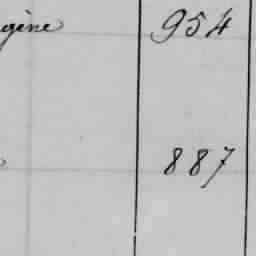 gène 954
887